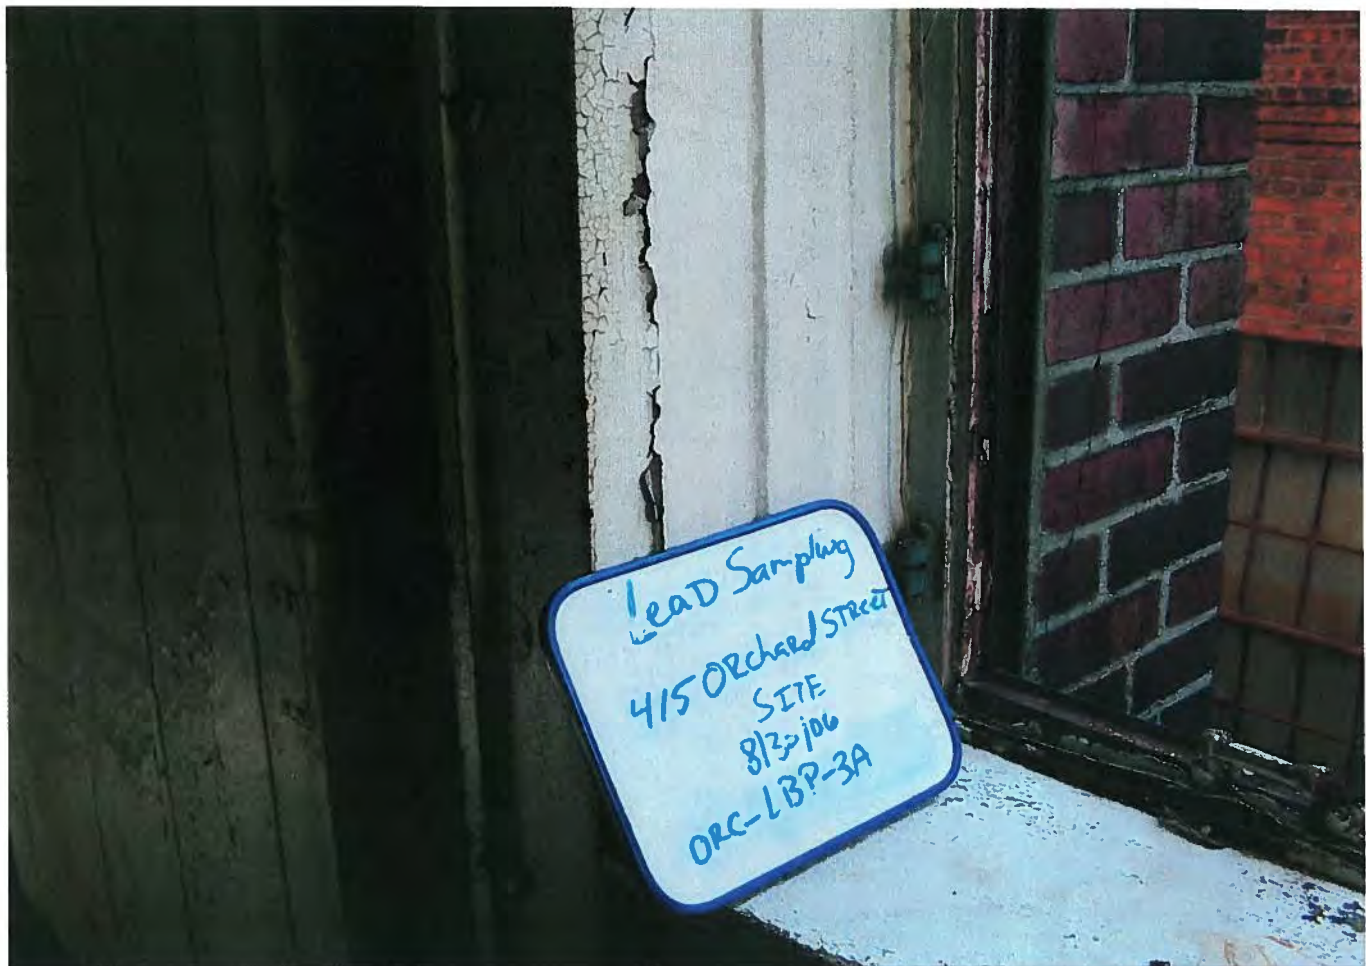 Lead Sampling
415 ORchard STREET
SITE
8/30/06
ORC-LBP-3A